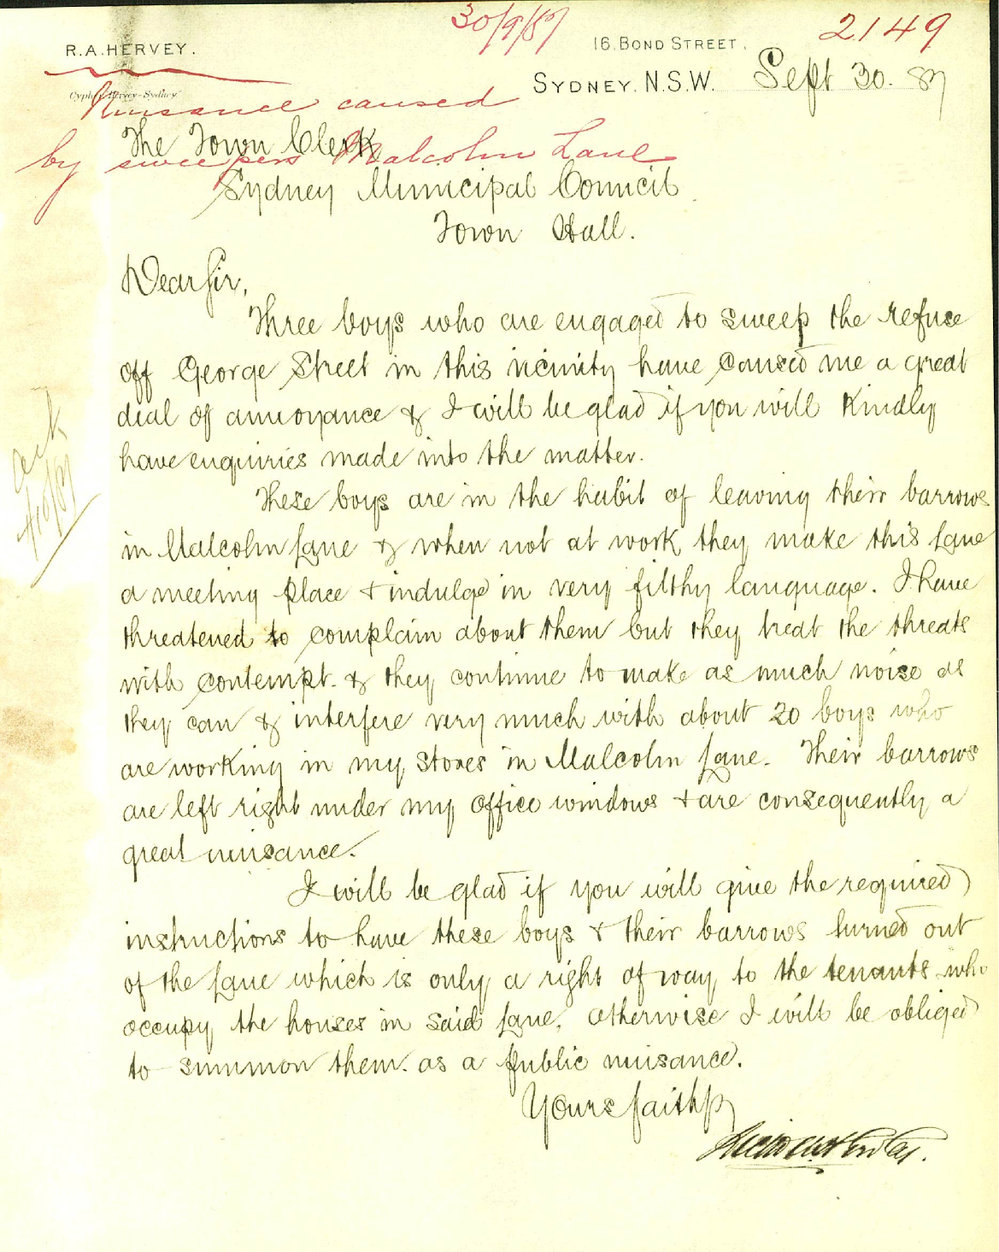 30/9/87
2149
R.A. HERVEY.
16. BOND STREET.
SYDNEY. N.S.W. Sept 30. 87
Cypher Hervey-Sydney
Nuisance caused
by sweepers Malcolm Lane
The Town Clerk
Sydney Municipal Council
Town Hall.
Dear Sir,
Three boys who are engaged to sweep the refuse
off George Street in this vicinity have caused me a great
deal of annoyance & I will be glad if you will Kindly
have enquiries made into the matter.
These boys are in the habit of leaving their barrows
in Malcolm Lane & when not at work they make this Lane
a meeting place & indulge in very filthy language. I have
threatened to complain about them but they treat the threats
with contempt. & they continue to make as much noise as
they can & interfere very much with about 20 boys who
are working in my Stores in Malcolm Lane. Their barrows
are left right under my office windows & are consequently a
great nuisance.
I will be glad if you will give the required
instructions to have these boys & their barrows turned out
of the Lane which is only a right of way to the tenants who
occupy the houses in said Lane, otherwise I will be obliged
to summon them as a public nuisance.
Yours faithfy
ack
4/10/87